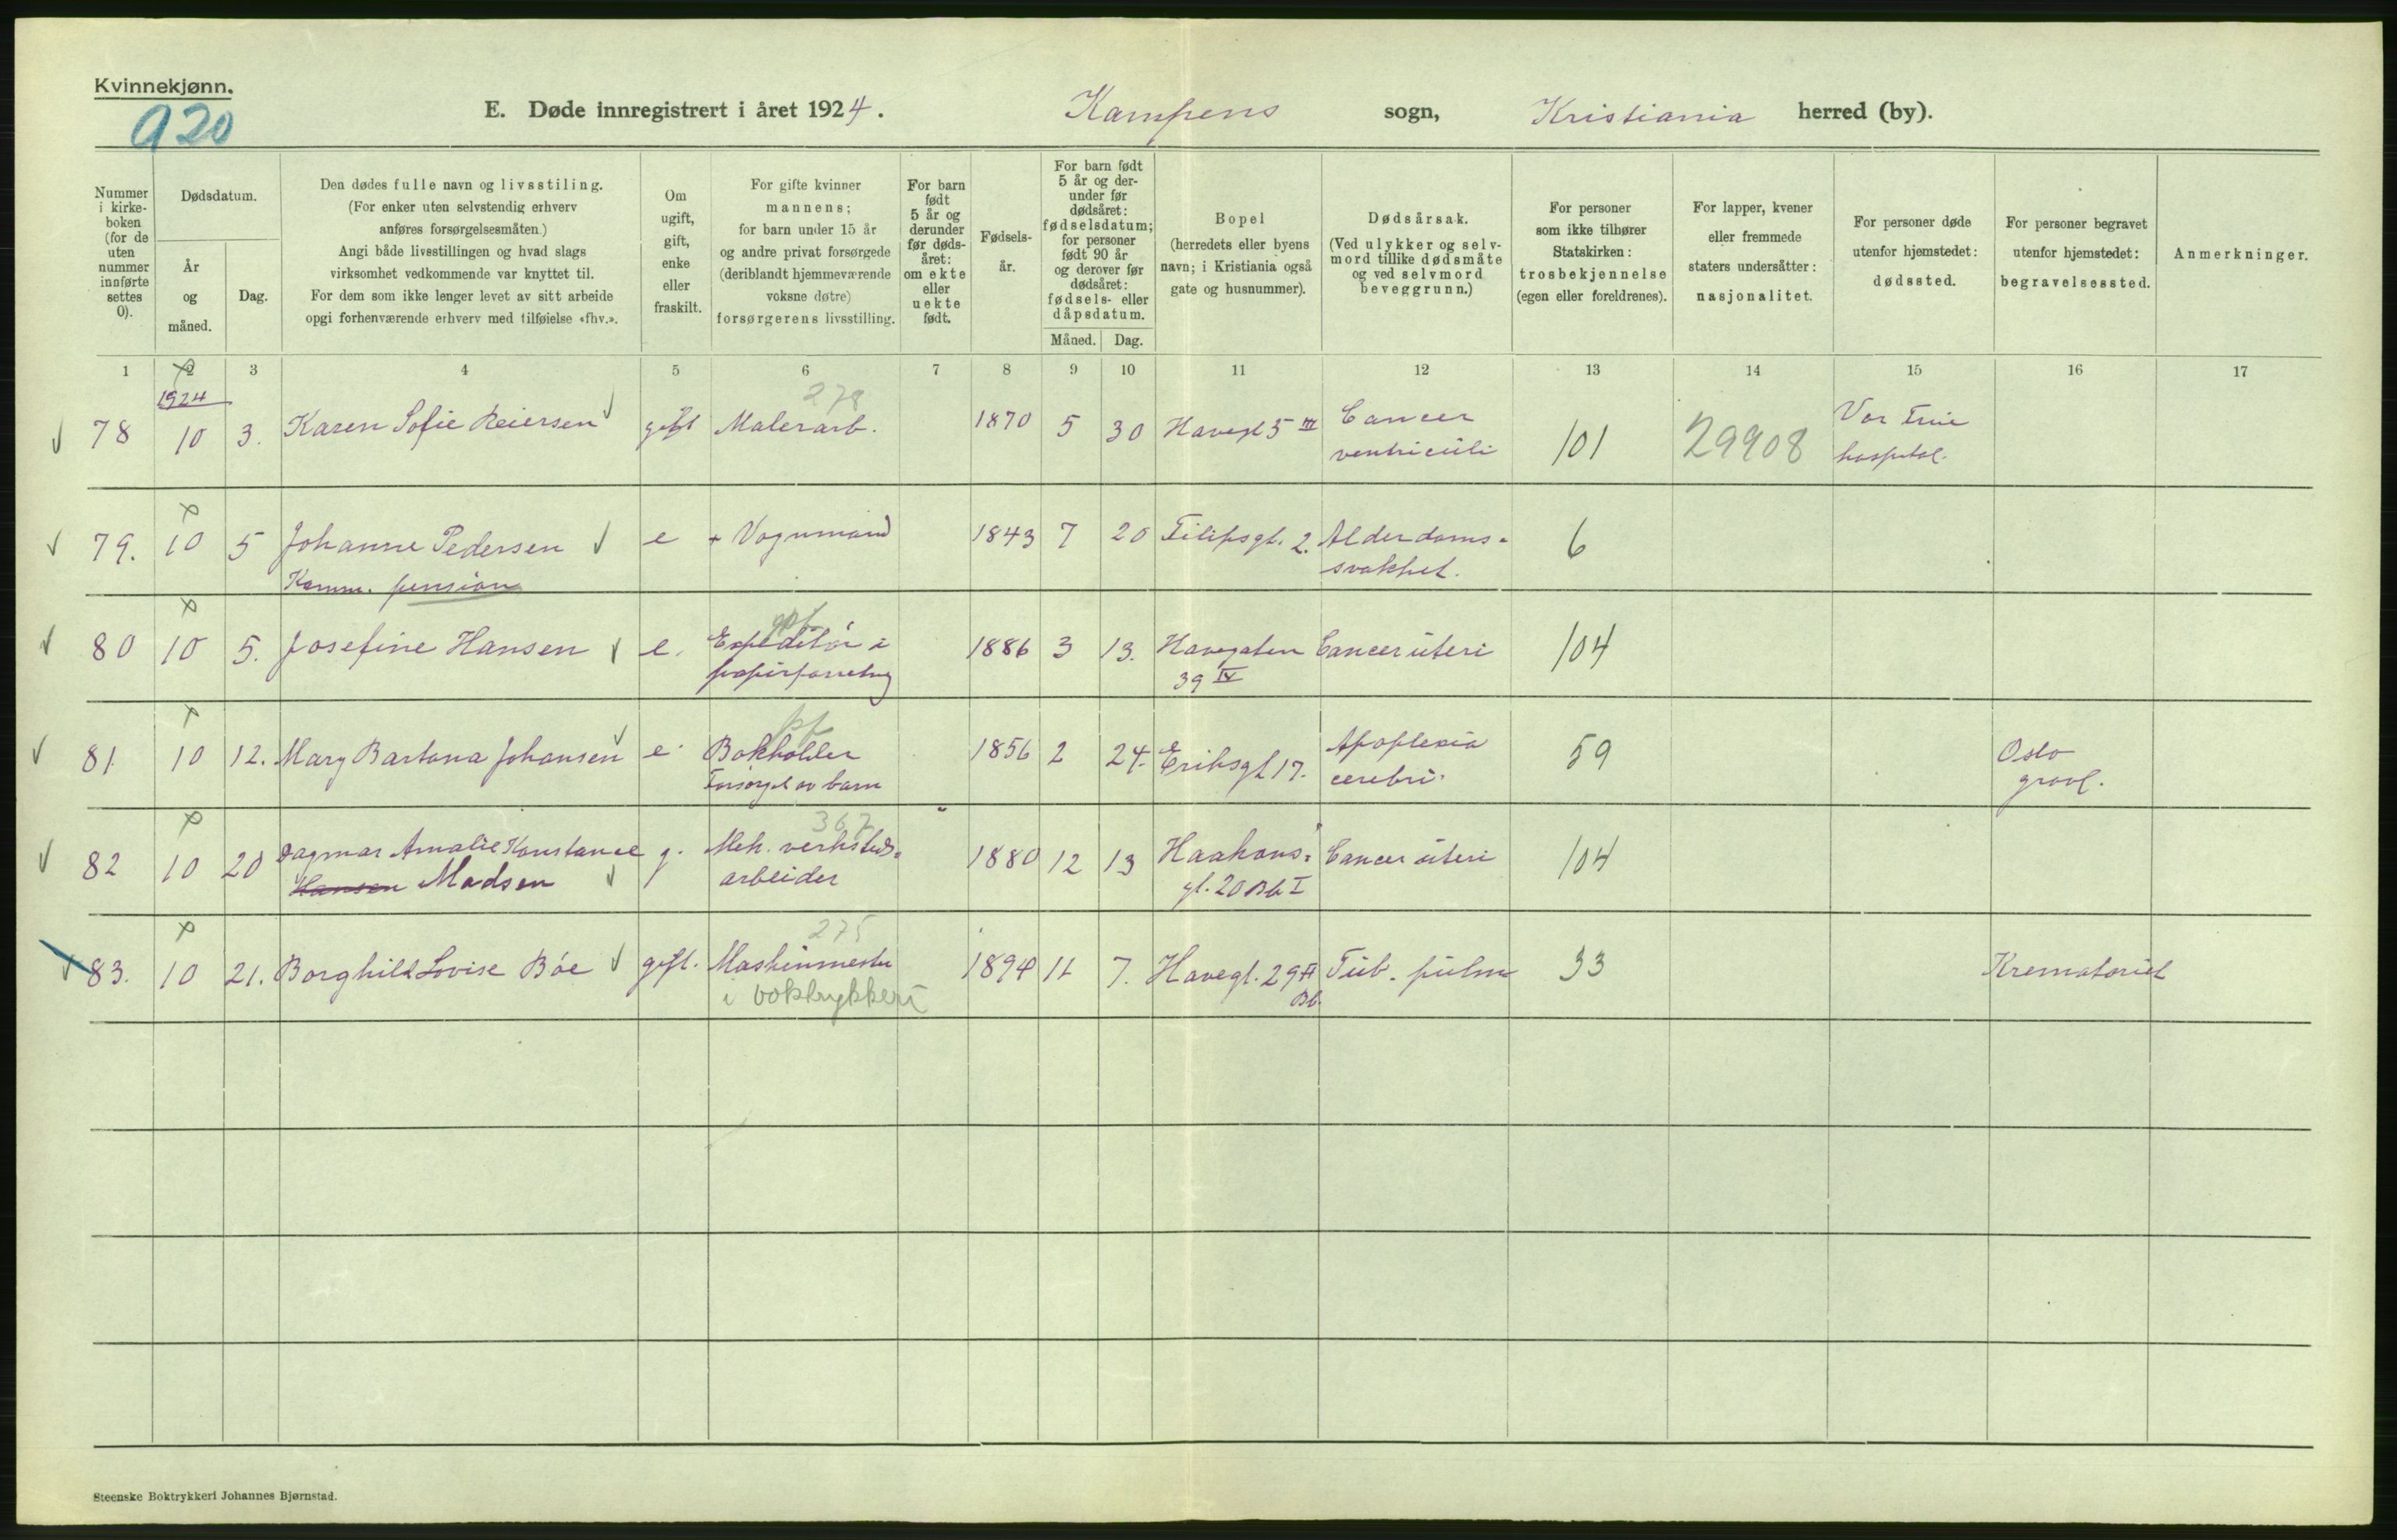 Kvinnekjønn.
a20
E. Døde innregistrert i året 1924. Kampens sogn, Kristiania herred (by).
Nummer i kirke-boken (for de uten nummer innførte settes 0).
Dødsdatum.
År og måned.
Dag.
Den dødes fulle navn og livsstiling.
(For enker uten selvstendig erhverv
anføres forsørgelsesmåten.)
Angi både livsstillingen og hvad slags
virksomhet vedkommende var knyttet til.
For dem som ikke lenger levet av sitt arbeide
opgi forhenværende erhverv med tilføielse «fhv.».
Om ugift, gift, enke eller fraskilt.
For gifte kvinner
mannens;
for barn under 15 år
og andre privat forsørgede
(deriblandt hjemmeværende
voksne døtre)
forsørgerens livsstilling.
For barn født 5 år og derunder før døds-året: om ekte eller uekte født.
Fødsels-år.
For barn født 5 år og der-under før dødsåret: fødselsdatum; for personer født 90 år og derover før dødsåret: fødsels- eller dåpsdatum.
Måned. Dag.
Bopel
(herredets eller byens
navn; i Kristiania også
gate og husnummer).
Dødsårsak.
(Ved ulykker og selv-
mord tillike dødsmåte
og ved selvmord
beveggrunn.)
For personer
som ikke tilhører
Statskirken:
trosbekjennelse
(egen eller foreldrenes).
For lapper, kvener
eller fremmede
staters undersåtter:
nasjonalitet.
For personer døde
utenfor hjemstedet:
dødssted.
For personer begravet
utenfor hjemstedet:
begravelsessted.
Anmerkninger.
1 2 3 4 5 6 7 8 9 10 11 12 13 14 15 16 17
1924 278
78 10 3. Karen Sofie Reiersen gift Malerarb. 1870 5 30 Havegt 5 III Cancer ventriculi 101 29908 Vor Frue hospital.
79. 10 5 Johanne Pedersen e + Vognmand 1843 7 20 Filipsgt. 2. Alderdoms-
Komm. pension svakhet. 6
80 10 5. Josefine Hansen e. Expeditør i 1886 3 13. Havegaten Cancer uteri 104
papirforretng 39 IV
81 10 12. Mary Bartona Johansen e. Bokholder 1856 2 24. Eriksgt 17. Apoplexia 59 Oslo
Forsørget av barn cerebri. gravl.
367
82 10 20 Dagmar Amalie Konstance g. Mek. verksteds- 1880 12 13 Haakons- Cancer uteri 104
Hansen Madsen arbeider gt. 20 Bb I
275
83. 10 21. Borghild Lovise Bøe gift. Maskinmester 1894 11 7. Havegt. 29 II Tub. pulm 33 Krematoriet
i boktrykkeri Bb.
Steenske Boktrykkeri Johannes Bjørnstad.